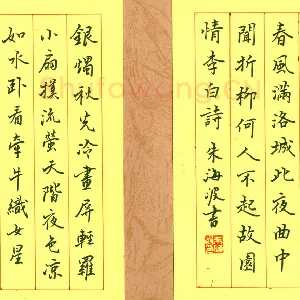 春風滿洛城此夜曲中
聞折柳何人不起故園
情李白詩 朱海波書
銀燭秋光冷畫屏輕羅
小扇撲流螢天階夜色凉
如水卧看牽牛織女星